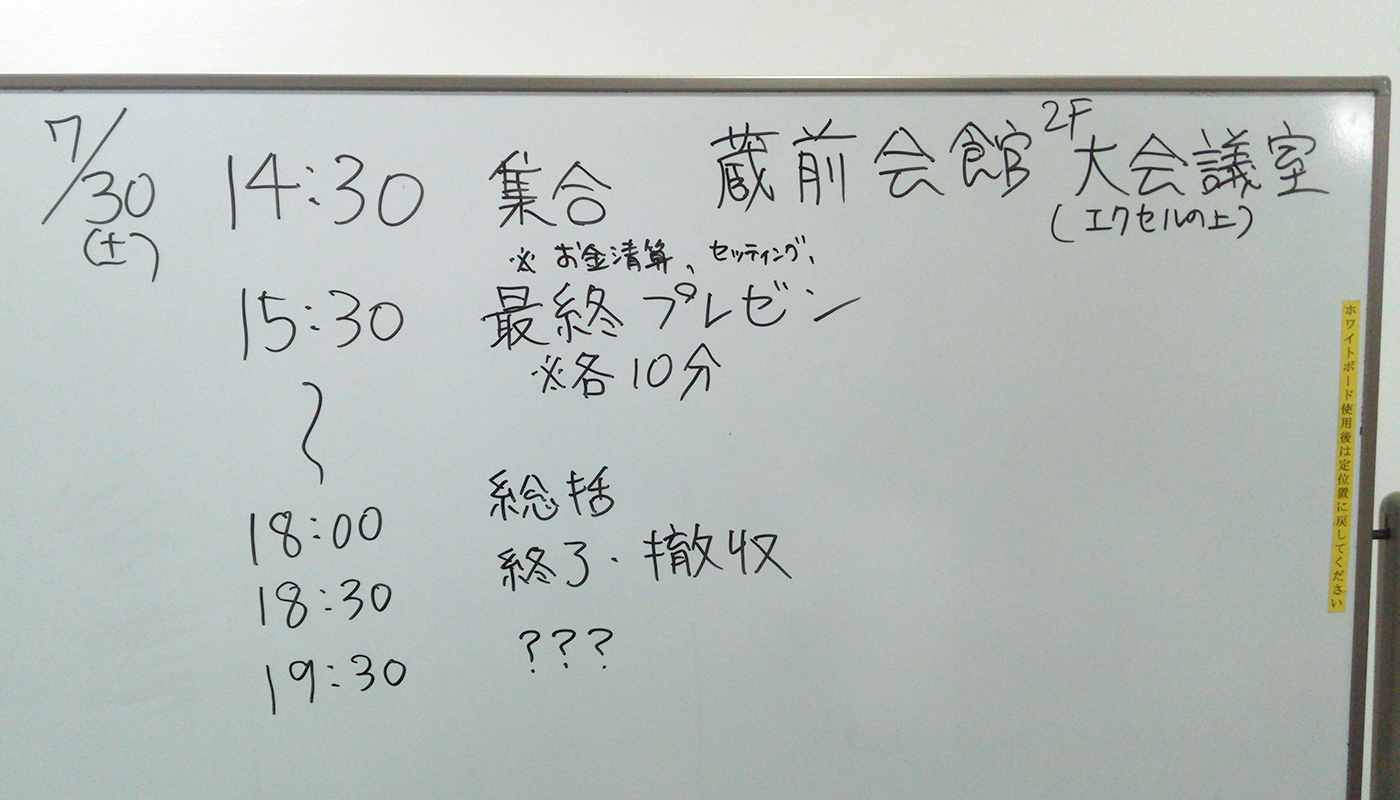 7/30 (土)
14:30 集合 蔵前会館 2F 大会議室
(エクセルの上)
※ お金清算、セッティング、
15:30 最終プレゼン
※各10分
〜
18:00 総括
18:30 終了・撤収
19:30 ???
ホワイトボード使用後は定位置に戻してください